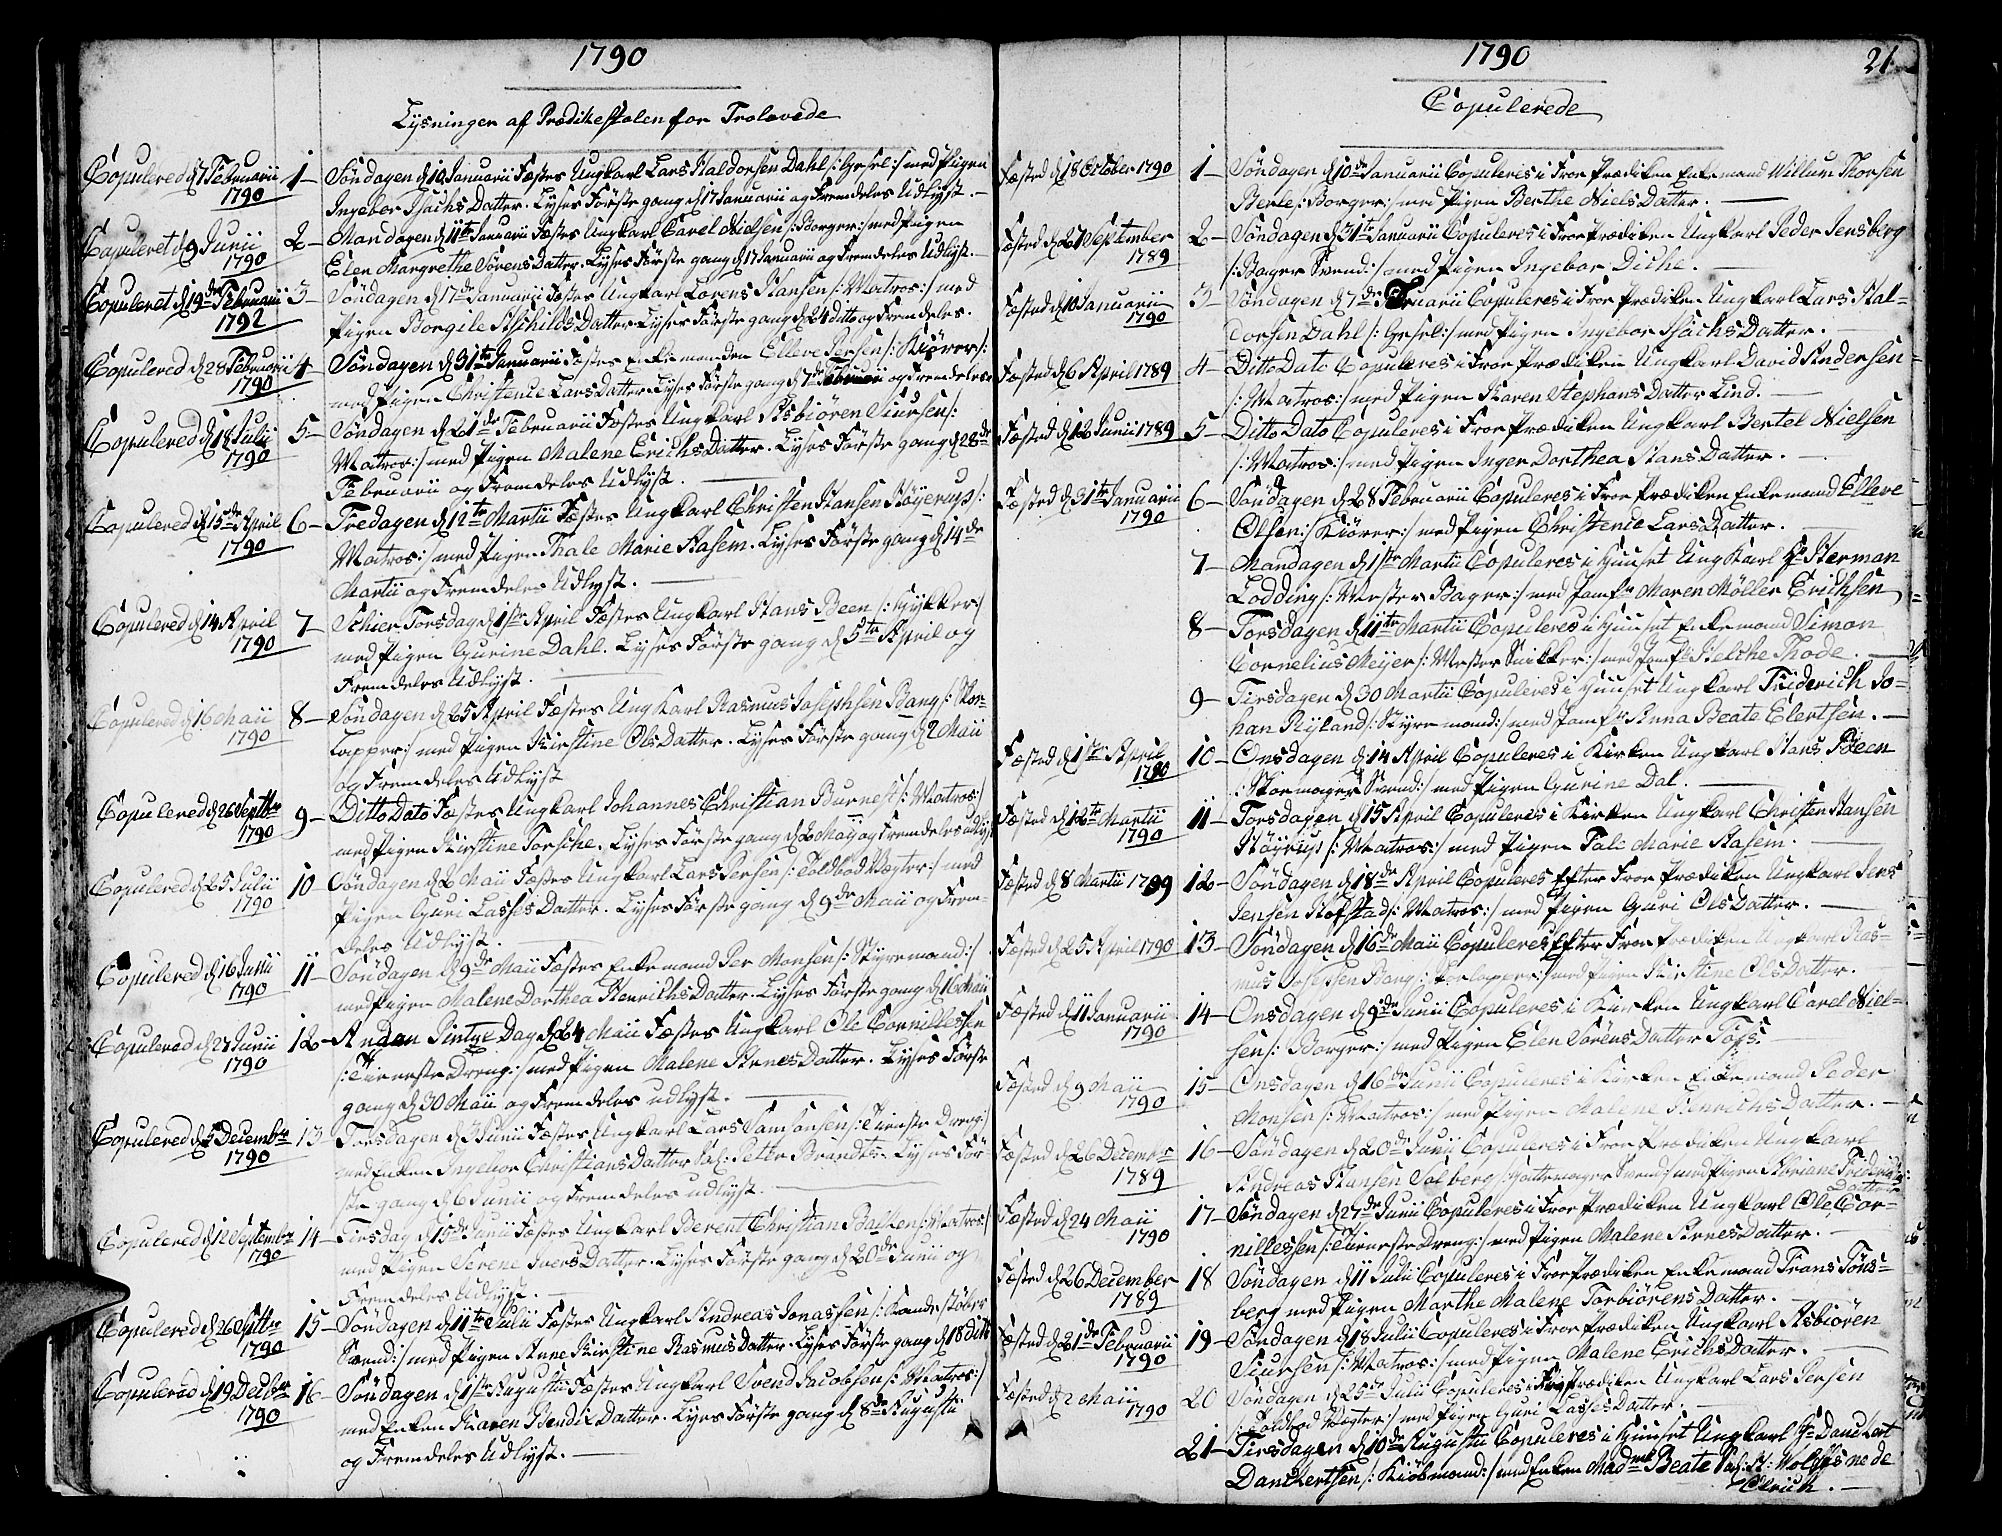 1790
Lysninger af Prædikestolen for Trolovede
Copulered d 7 Februarii 1790
1 — Søndagen d 10 Januarii Fæstes Ungkarl Lars Haldorsen Dahl /: Gesel :/ med Pigen
Ingeber Isachs Datter. Lyses Første gang d 17 Januarii og Fremdeles Udlyst. —
Copuleret d 9 Junii 1790
2 — Mandagen d 11te Januarii Fæstes Ungkarl Carel Nielsen /: Borger :/ med Pigen
Elen Margrethe Sørens Datter. Lyses Første gang d 17 Januarii og Fremdeles Udlyst. —
Copuleret d 19de Februarii 1792
3 — Søndagen d 17de Januarii Fæstes Ungkarl Lorens Hansen /: Matros :/ med
Pigen Borgile Datter. Lyses Første gang d 24 ditto og Fremdeles.
Copulered d 28 Februarii 1790
4 — Søndagen d 31te Januarii Fæstes Enkemanden Elleve /: Kiører :/
med Pigen Christence Lars Datter. Lyses Første gang d 7de Februarii og Fremdeles
Copulered d 18 Julii 1790
5 — Søndagen d 21de Februarii Fæstes Ungkarl Asbiören Siursen /:
Matros :/ med Pigen Malene Erichs Datter. Lyses Første gang d 28de
Februarii og Fremdeles Udlyst. —
Copulered d 15de April 1790
6 — Fredagen d 12te Martii Fæstes Ungkarl Christen Hansen Høyerup /:
Matros :/ med Pigen Thale Marie Hasem. Lyses Første gang d 14de
Martii og Fremdeles Udlyst. —
Copulered d 14 April 1790
7 — Schier Torsdag d 1ste April Fæstes Ungkarl Hans Been
med Pigen Gurine Dahl. Lyses Første gang d 5te April og
Fremdeles Udlyst. —
Copulered d 16 Maii 1790
8 — Søndagen d 25 April Fæstes Ungkarl Rasmus Josephsen Bang /:
:/ med Pigen Kirstine Ols Datter. Lyses Første gang d 2 Maii
og Fremdeles Udlyst
Copulered d 26 Septbr 1790
9 — Ditto Dato Fæstes Ungkarl Johannes Christian Burnest /: Matros :/
med Pigen Kirstine Torsche. Lyses Første gang d 2 Maij og Fremdeles udlyst
Copulered d 25 Julii 1790
10 — Søndagen d 2 Maii Fæstes Ungkarl Lars Persen /: Toldbod Vægter :/ med
Pigen Guri Lasses Datter. Lyses Første gang d 9de Maii og Frem-
deles Udlyst. —
Copulered d 16 Junii 1790
11 — Søndagen d 9de Maii Fæstes Enkemand Per Monsen /: Styremand :/
med Pigen Malene Dorthea Henrichs Datter. Lyses Første gang d 16 Maii
Copulered d 27 Junii 1790
12 — Anden Pintze Dag d 24 Maii Fæstes Ungkarl Ole Cornillessen
/: Tieneste Dreng :/ med Pigen Malene Arnes Datter. Lyses Første
gang d 30 Maii og Fremdeles udlyst. —
Copulered d 5 Decembr 1790
13 — Torsdagen d 3 Junii Fæstes Ungkarl Lars Samsonsen /: Tieneste Dreng :/
med Enken Ingebor Christians Datter Sal: Petter Brandts. Lyses För
ste gang d 6 Junii og Fremdeles udlyst. —
Copulered d 12 Septembr 1790
14 — Tirsdag d 15de Junii Fæstes Ungkarl Berent Christian Balchen /: Matros :/
med Pigen Serene Ivers Datter. Lyses Første gang d 20de Junii og
Fremdeles Udlyst. —
Copulered d 26 Septbr 1790
15 — Søndagen d 11te Julii Fæstes Ungkarl Andreas Jonassen /: Kandestøber
Svend :/ med Pigen Anne Kirstine Rasmus Datter. Lyses Første gang d 18 dito
Copulered d 19 Decbr 1790
16 — Søndagen d 1ste Augustii Fæstes Ungkarl Svend Jacobsen /: Matros :/
med Enken Karen Bendix Datter. Lyses Første gang d 8de Augustii
og Fremdeles Udlyst. —
1790
21
Copulerede
Fæsted d 18 October 1790
1 — Søndagen d 10de Januarii Copuleres i Froe Prædiken Enkemand Willum Thorsen
Berle /: Borger :/ med Pigen Berthe Niels Datter. —
Fæsted d 27 September 1789
2 — Søndagen d 31te Januarii Copuleres i Froe Prædiken Ungkarl Peder Jensberg
/: Bager Svend :/ med Pigen Ingebor Diche. —
Fæsted d 10 Januarii 1790
3 — Søndagen d 7de Februarii Copuleres i Froe Prædiken Ungkarl Lars Hal-
dorsen Dahl /: Gesel :/ med Pigen Ingebor Isachs Datter. —
Fæsted d 6 April 1789
4 — Ditto Dato Copuleres i Froe Prædiken Ungkarl David Andersen
/: Matros :/ med Pigen Karen Stephans Datter Lind. —
Fæsted d 12 Junii 1789
5 — Ditto Dato Copuleres i Froe Prædiken Ungkarl Bertel Nielsen
/: Matros :/ med Pigen Inger Dorthea Hans Datter. —
Fæsted d 31te Januarii 1790
6 — Søndagen d 28 Februarii Copuleres i Froe Prædiken Enkemand Elleve
Olsen /: Kiörer :/ med Pigen Christence Lars Datter. —
7 — Mandagen d 1ste Martii Copuleres i Huuset Ungkarl Hr Herman
Lodding /: Mester Bager :/ med Jomfr Maren Møller Erichsen
8 — Torsdagen d 11te Martii Copuleres i Huuset Enkemand Simon
Cornelius Meyer /: Mester Snikker :/ med Jomfr Helche Thode. —
9 — Tirsdagen d 30 Martii Copuleres i Huuset Ungkarl Friderich Jo-
han Ryland /: Styremand :/ med Jomfr Anna Beate Elertsen. —
Fæsted d 1ste April 1790
10 — Onsdagen d 14 April Copuleres i Kirken Ungkarl Hans Been
/: Skoemager Svend :/ med Pigen Gurine Dal. —
Fæsted d 12te Martii 1790
11 — Torsdagen d 15 April Copuleres i Kirken Ungkarl Christen Hansen
Høyrup /: Matros :/ med Pigen Tale Marie Hasem. —
Fæsted d 8 Martii 1789
12 — Søndagen d 18de April Copuleres Efter Froe Prædiken Ungkarl Jens
Jensen Hofstad /: Matros :/ med Pigen Guri Ols Datter. —
Fæsted d 25 April 1790
13 — Søndagen d 16de Maii Copuleres Efter Froe Prædiken Ungkarl Ras-
mus Josepsen Bang /: :/ med Pigen Kirstine Ols Datter. —
Fæsted d 11 Januarii 1790
14 — Onsdagen d 9de Junii Copuleres i Kirken Ungkarl Carel Niel-
sen /: Borger :/ med Pigen Elen Sörens Datter
Fæsted d 9 Maii 1790
15 — Onsdagen d 16de Junii Copuleres i Kirken Enkemand Peder
Monsen /: Matros :/ med Pigen Malene Henrichs Datter. —
Fæsted d 26 Decembr 1789
16 — Søndagen d 20de Junii Copuleres i Froe Prædiken Ungkarl
Andreas Hansen Solberg /: Hattemager Svend :/ med Pigen Abriane Friderichs
Datter
Fæsted d 24 Maii 1790
17 — Søndagen d 27de Junii Copuleres i Froe Prædiken Ungkarl Ole Cor-
nillessen /: Tieneste Dreng :/ med Pigen Malene Arnes Datter. —
Fæsted d 26 December 1789
18 Søndagen d 11 Julii Copuleres i Froe Prædiken Enkemand Frans Töns-
berg med Pigen Marthe Malene Torbiörens Datter. —
Fæsted d 21de Februarii 1790
19 — Søndagen d 18 Julii Copuleres i Froe Prædiken Ungkarl Asbiören
Siursen /: Matros :/ med Pigen Malene Erichs Datter. —
Fæsted d 2 Maii 1790
20 Søndagen d 25de Julii Copuleres i Froe Prædiken Ungkarl Lars Persen
/: Toldbod Vægter :/ med Pigen Guri Lasses Datter. —
21 — Tirsdagen d 10de Augustii Copuleres i Huuset Ungkarl Hr Danckert
Danckertsen /: Kiöbmand :/ med Enken Madme Beate Sal: H: Wolffs nede
Elrich. —